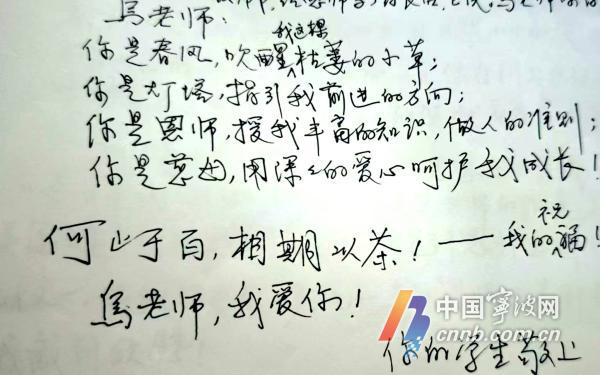 馬老师：
你是春风，吹醒我这棵枯萎的小草；
你是灯塔，指引我前进的方向；
你是恩师，授我丰富的知识，做人的准则；
你是慈母，用深深的爱心呵护我成长！
何止于百，相期以茶！——我的祝福！
馬老师，我爱你！
你的学生敬上
中国宁波网
cnnb.com.cn